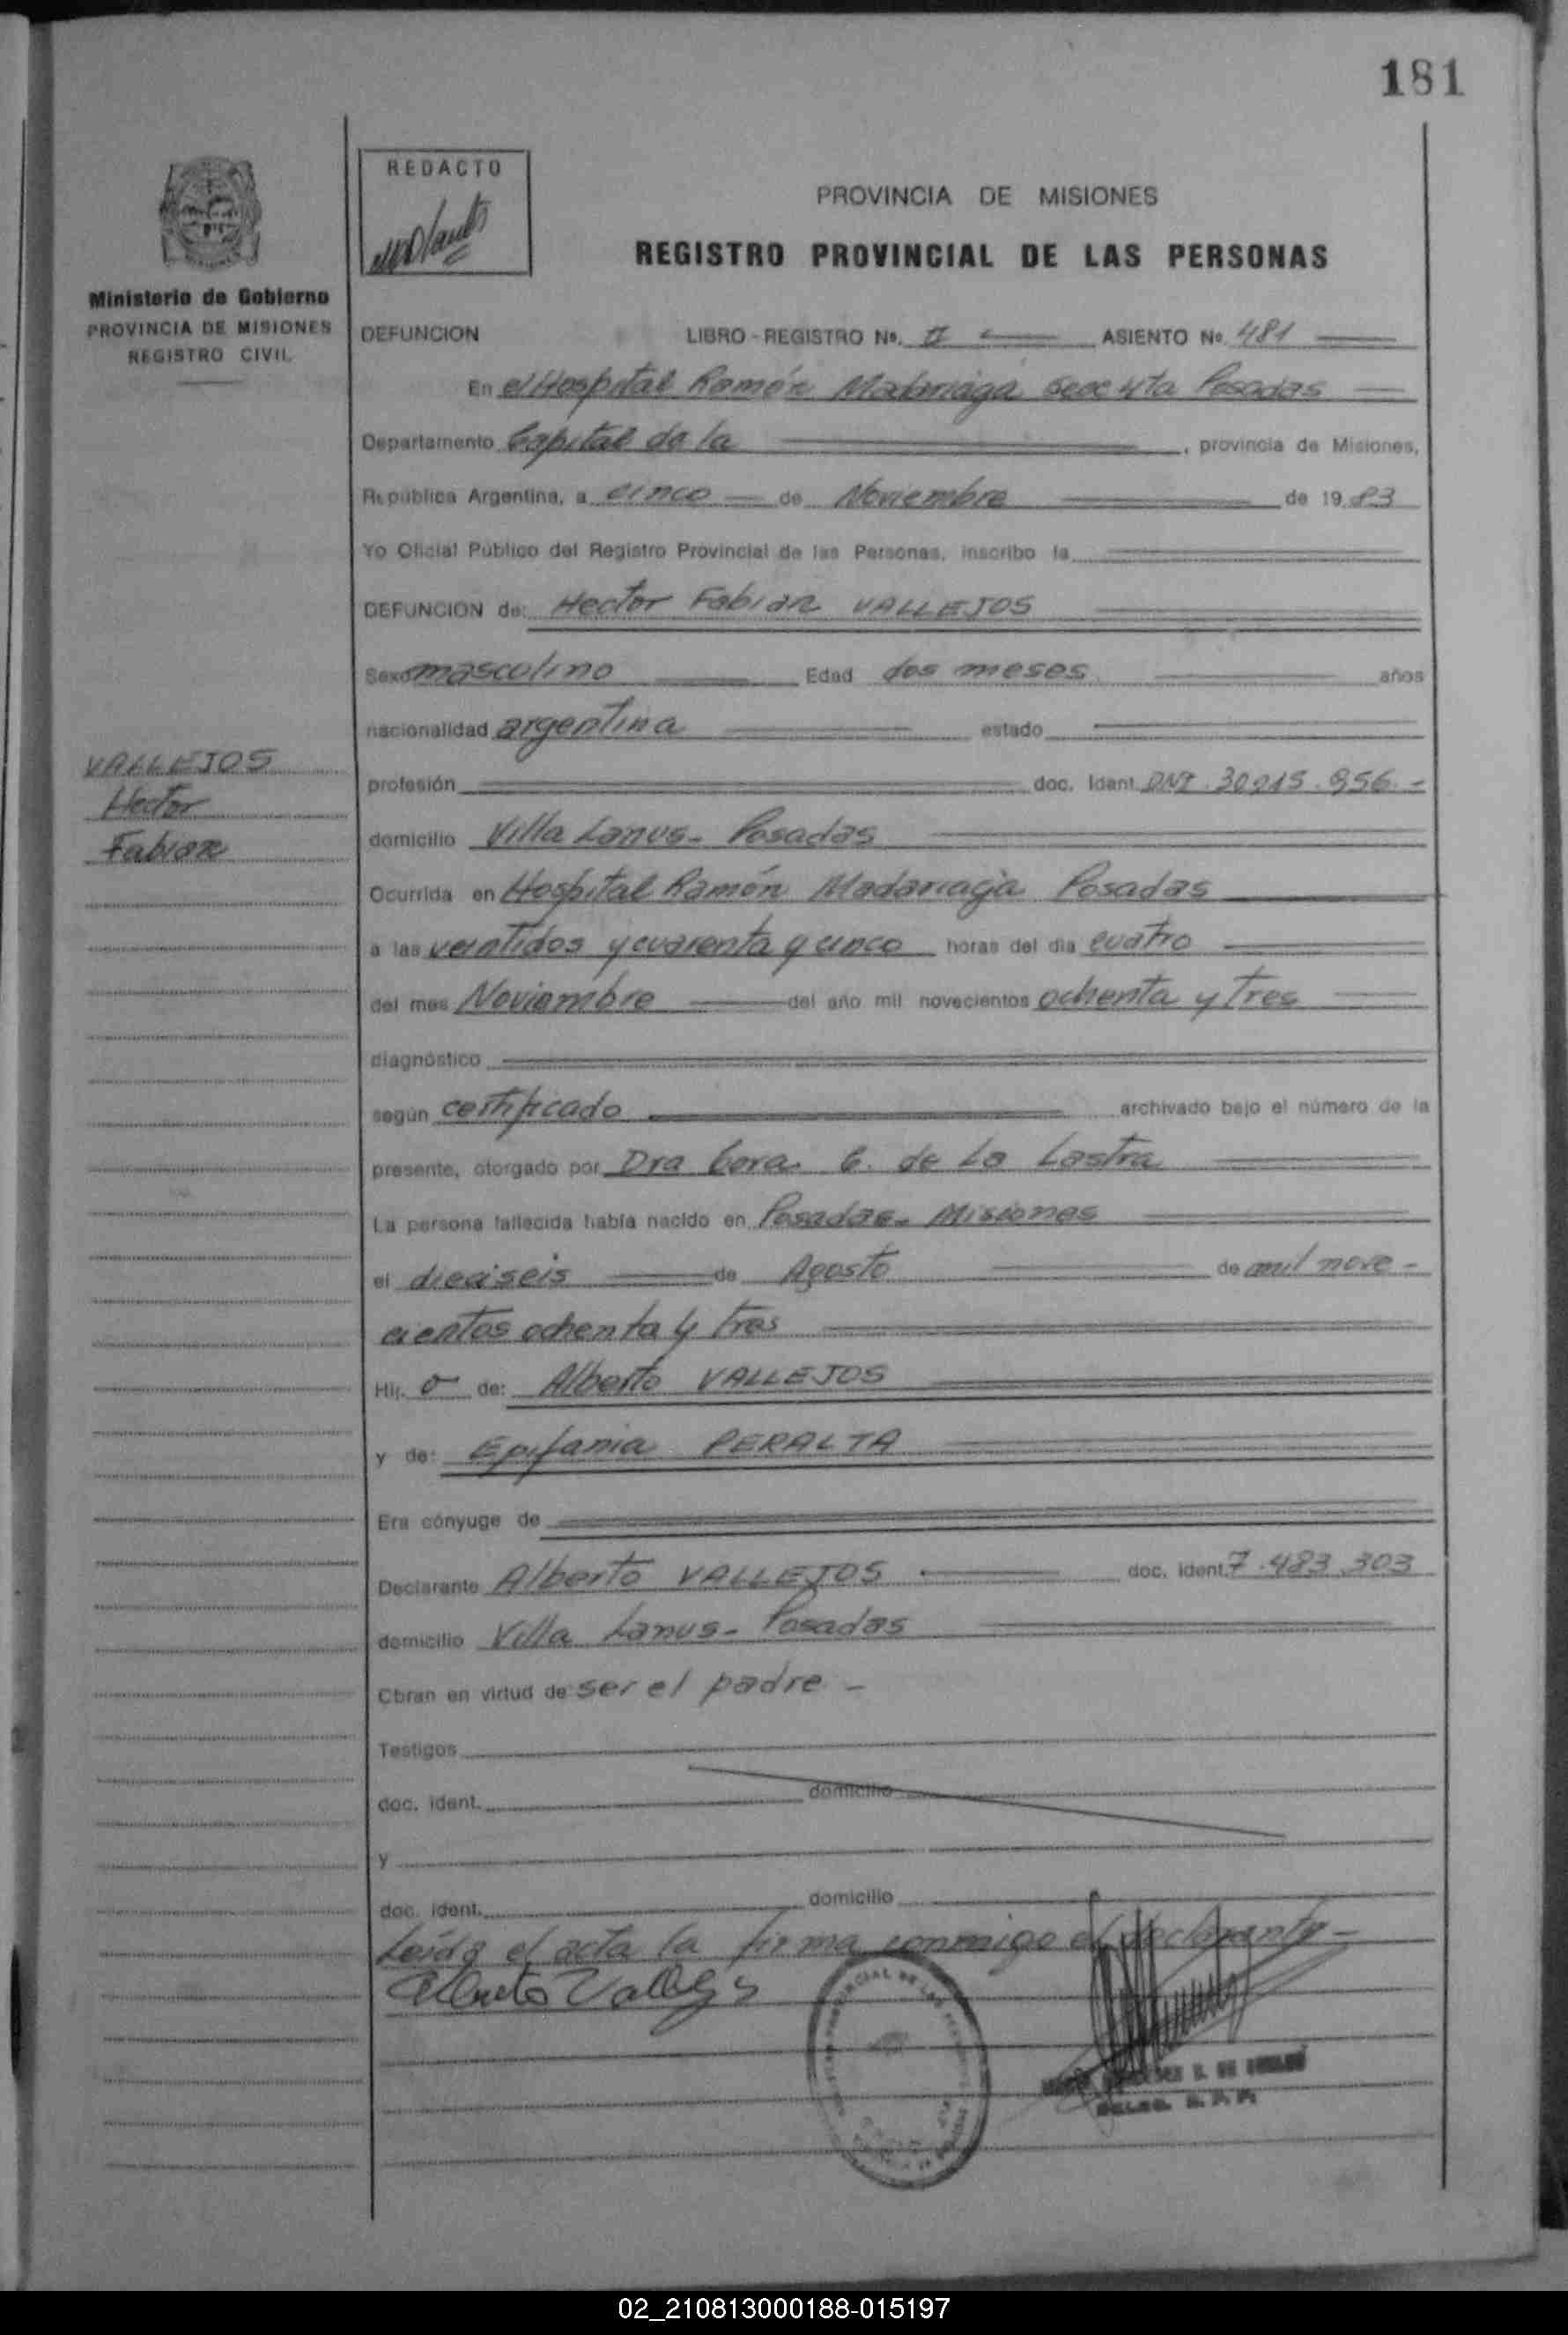 181
REDACTO
PROVINCIA DE MISIONES
REGISTRO PROVINCIAL DE LAS PERSONAS
Ministerio de Gobierno
PROVINCIA DE MISIONES
REGISTRO CIVIL
DEFUNCION LIBRO - REGISTRO No. II ASIENTO No 481
En el Hospital Ramón Madariaga Secc 4ta Posadas
Departamento Capital de la , provincia de Misiones,
República Argentina, a cinco de Noviembre de 19 83
Yo Oficial Público del Registro Provincial de las Personas, inscribo la
DEFUNCION de: Hector Fabian VALLEJOS
Sexo masculino Edad dos meses años
nacionalidad argentina estado
VALLEJOS
Hector
Fabian
profesión doc. Ident. DNI. 30.215.856.-
domicilio Villa Lanus- Posadas
Ocurrida en Hospital Ramón Madariaga Posadas
a las veintidos y cuarenta y cinco horas del día cuatro
del mes Noviembre del año mil novecientos ochenta y tres
diagnóstico
según certificado archivado bajo el número de la
presente, otorgado por Dra Cora G. de La Lastra
La persona fallecida había nacido en Posadas- Misiones
el dieciseis de Agosto de mil nove-
cientos ochenta y tres
Hij. o de: Alberto VALLEJOS
y de: Epifania PERALTA
Era cónyuge de
Declarante Alberto VALLEJOS doc. ident. 7.483.303
domicilio Villa Lanus- Posadas
Obran en virtud de ser el padre -
Testigos
doc. ident. domicilio
y
doc. ident. domicilio
Leída el acta la firma conmigo el declarante-
Alberto Vallejos
02_210813000188-015197